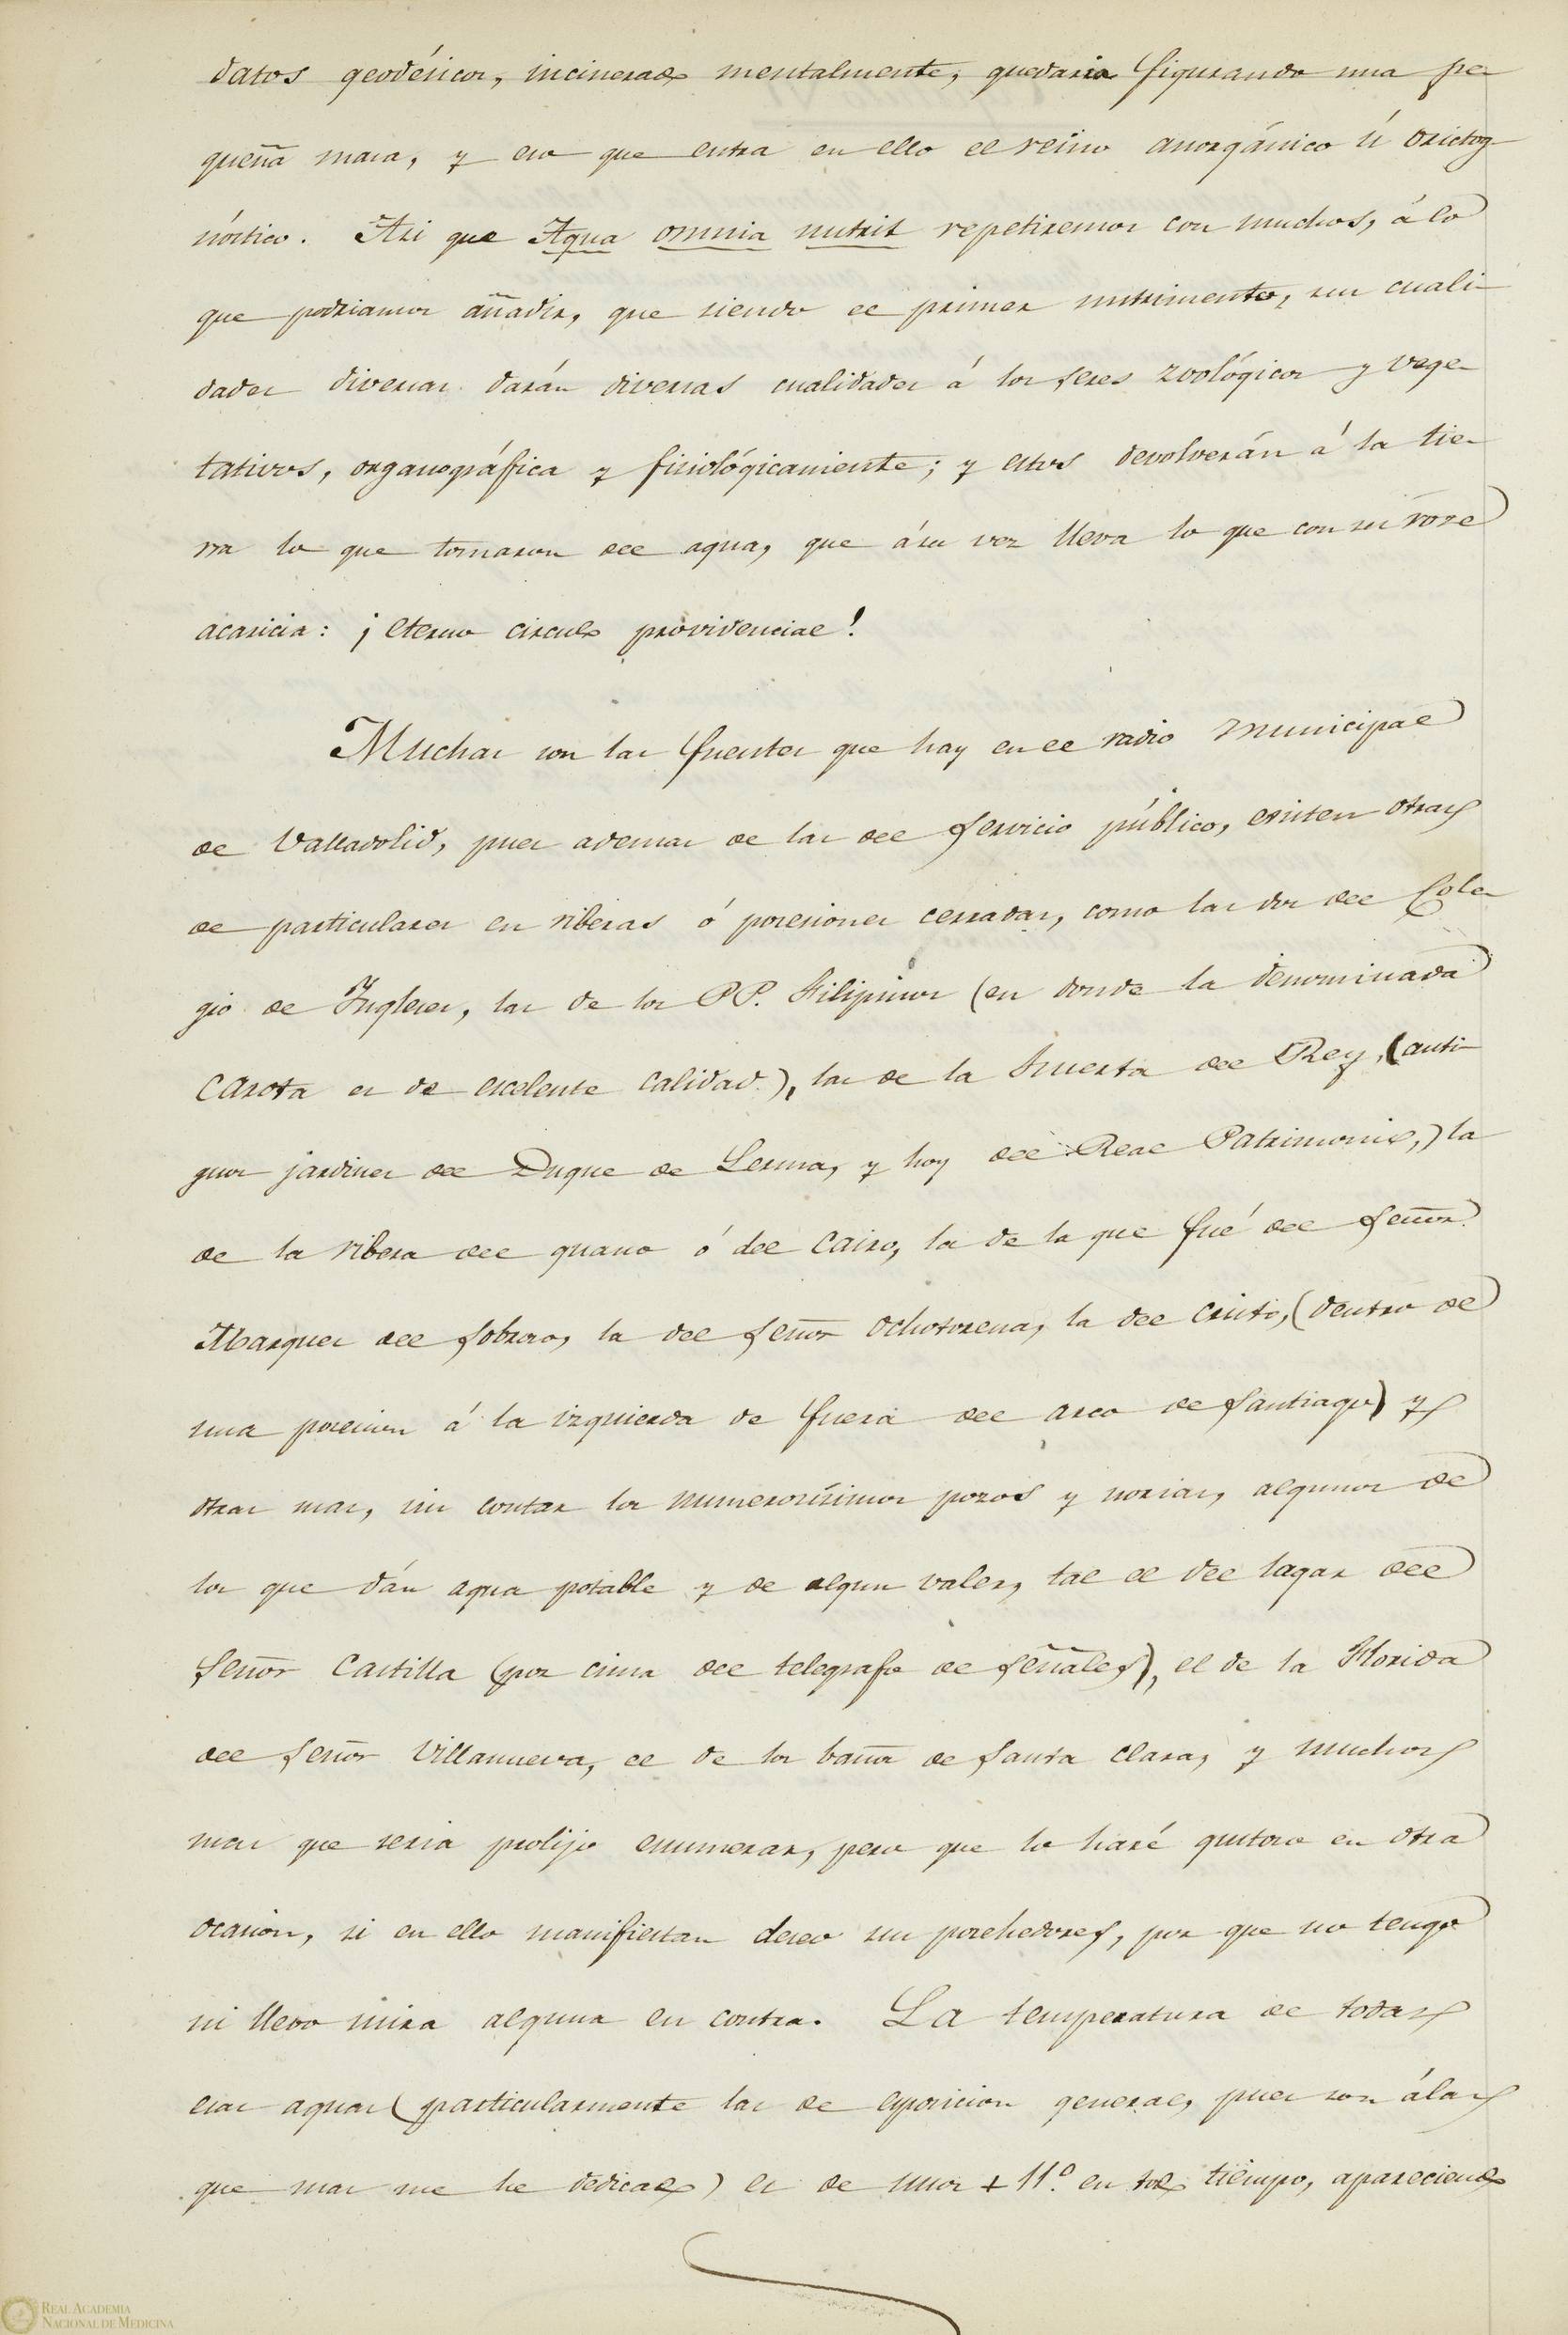 datos geodésicos, incinerado mentalmente, quedaria figurando una pe-
queña masa, y eso que entra en ello el reino anorgánico ú orictog-
nóstico. Asi que Aqua omnia nutrit repetiremos con muchos, á lo
que podriamos añadir, que siendo el primer nutrimento, sus cuali-
dades diversas darán diversas cualidades á los seres zoológicos y vege-
tativos, organográfica y fisiológicamente; y estos devolverán á la tie-
rra lo que tomaron del agua, que ásu vez lleva lo que con su roze
acaricia: ¡eterno circulo providencial!
Muchas son las fuentes que hay en el radio municipal
de Valladolid, pues ademas de las del servicio público, existen otras
de particulares en riberas ó posesiones cerradas, como las dos del Cole-
gio de Ingleses, las de los PP. Filipinos (en donde la denominada
Carota es de escelente calidad), las de la huerta del Rey, (anti-
guos jardines del Duque de Lerma, y hoy del Real Patrimonio,) la
de la ribera del guano ó del Cairo, la de la que fué del señor
Marques del Sobroso, la del señor Ochotorena, la del Cristo, (dentro de
una posesion á la izquierda de fuera del arco de Santiago) y
otras mas, sin contar los numerosísimos pozos y norias, algunos de
los que dán agua potable y de algun valer, tal el del lagar del
señor Castilla (por cima del telegrafo de señales), el de la Florida
del señor Villanueva, el de los baños de Santa Clara, y muchos
mas que seria prolijo enumerar, pero que lo haré gustoso en otra
ocasion, si en ello manifiestan deseo sus posehedores, por que no tengo
ni llevo mira alguna en contra. La temperatura de todas
esas aguas (particularmente las de esposicion general, pues son álas
que mas me he dedicado) es de unos + 11.º en todo tiempo, apareciendo
REAL ACADEMIA
NACIONAL DE MEDICINA